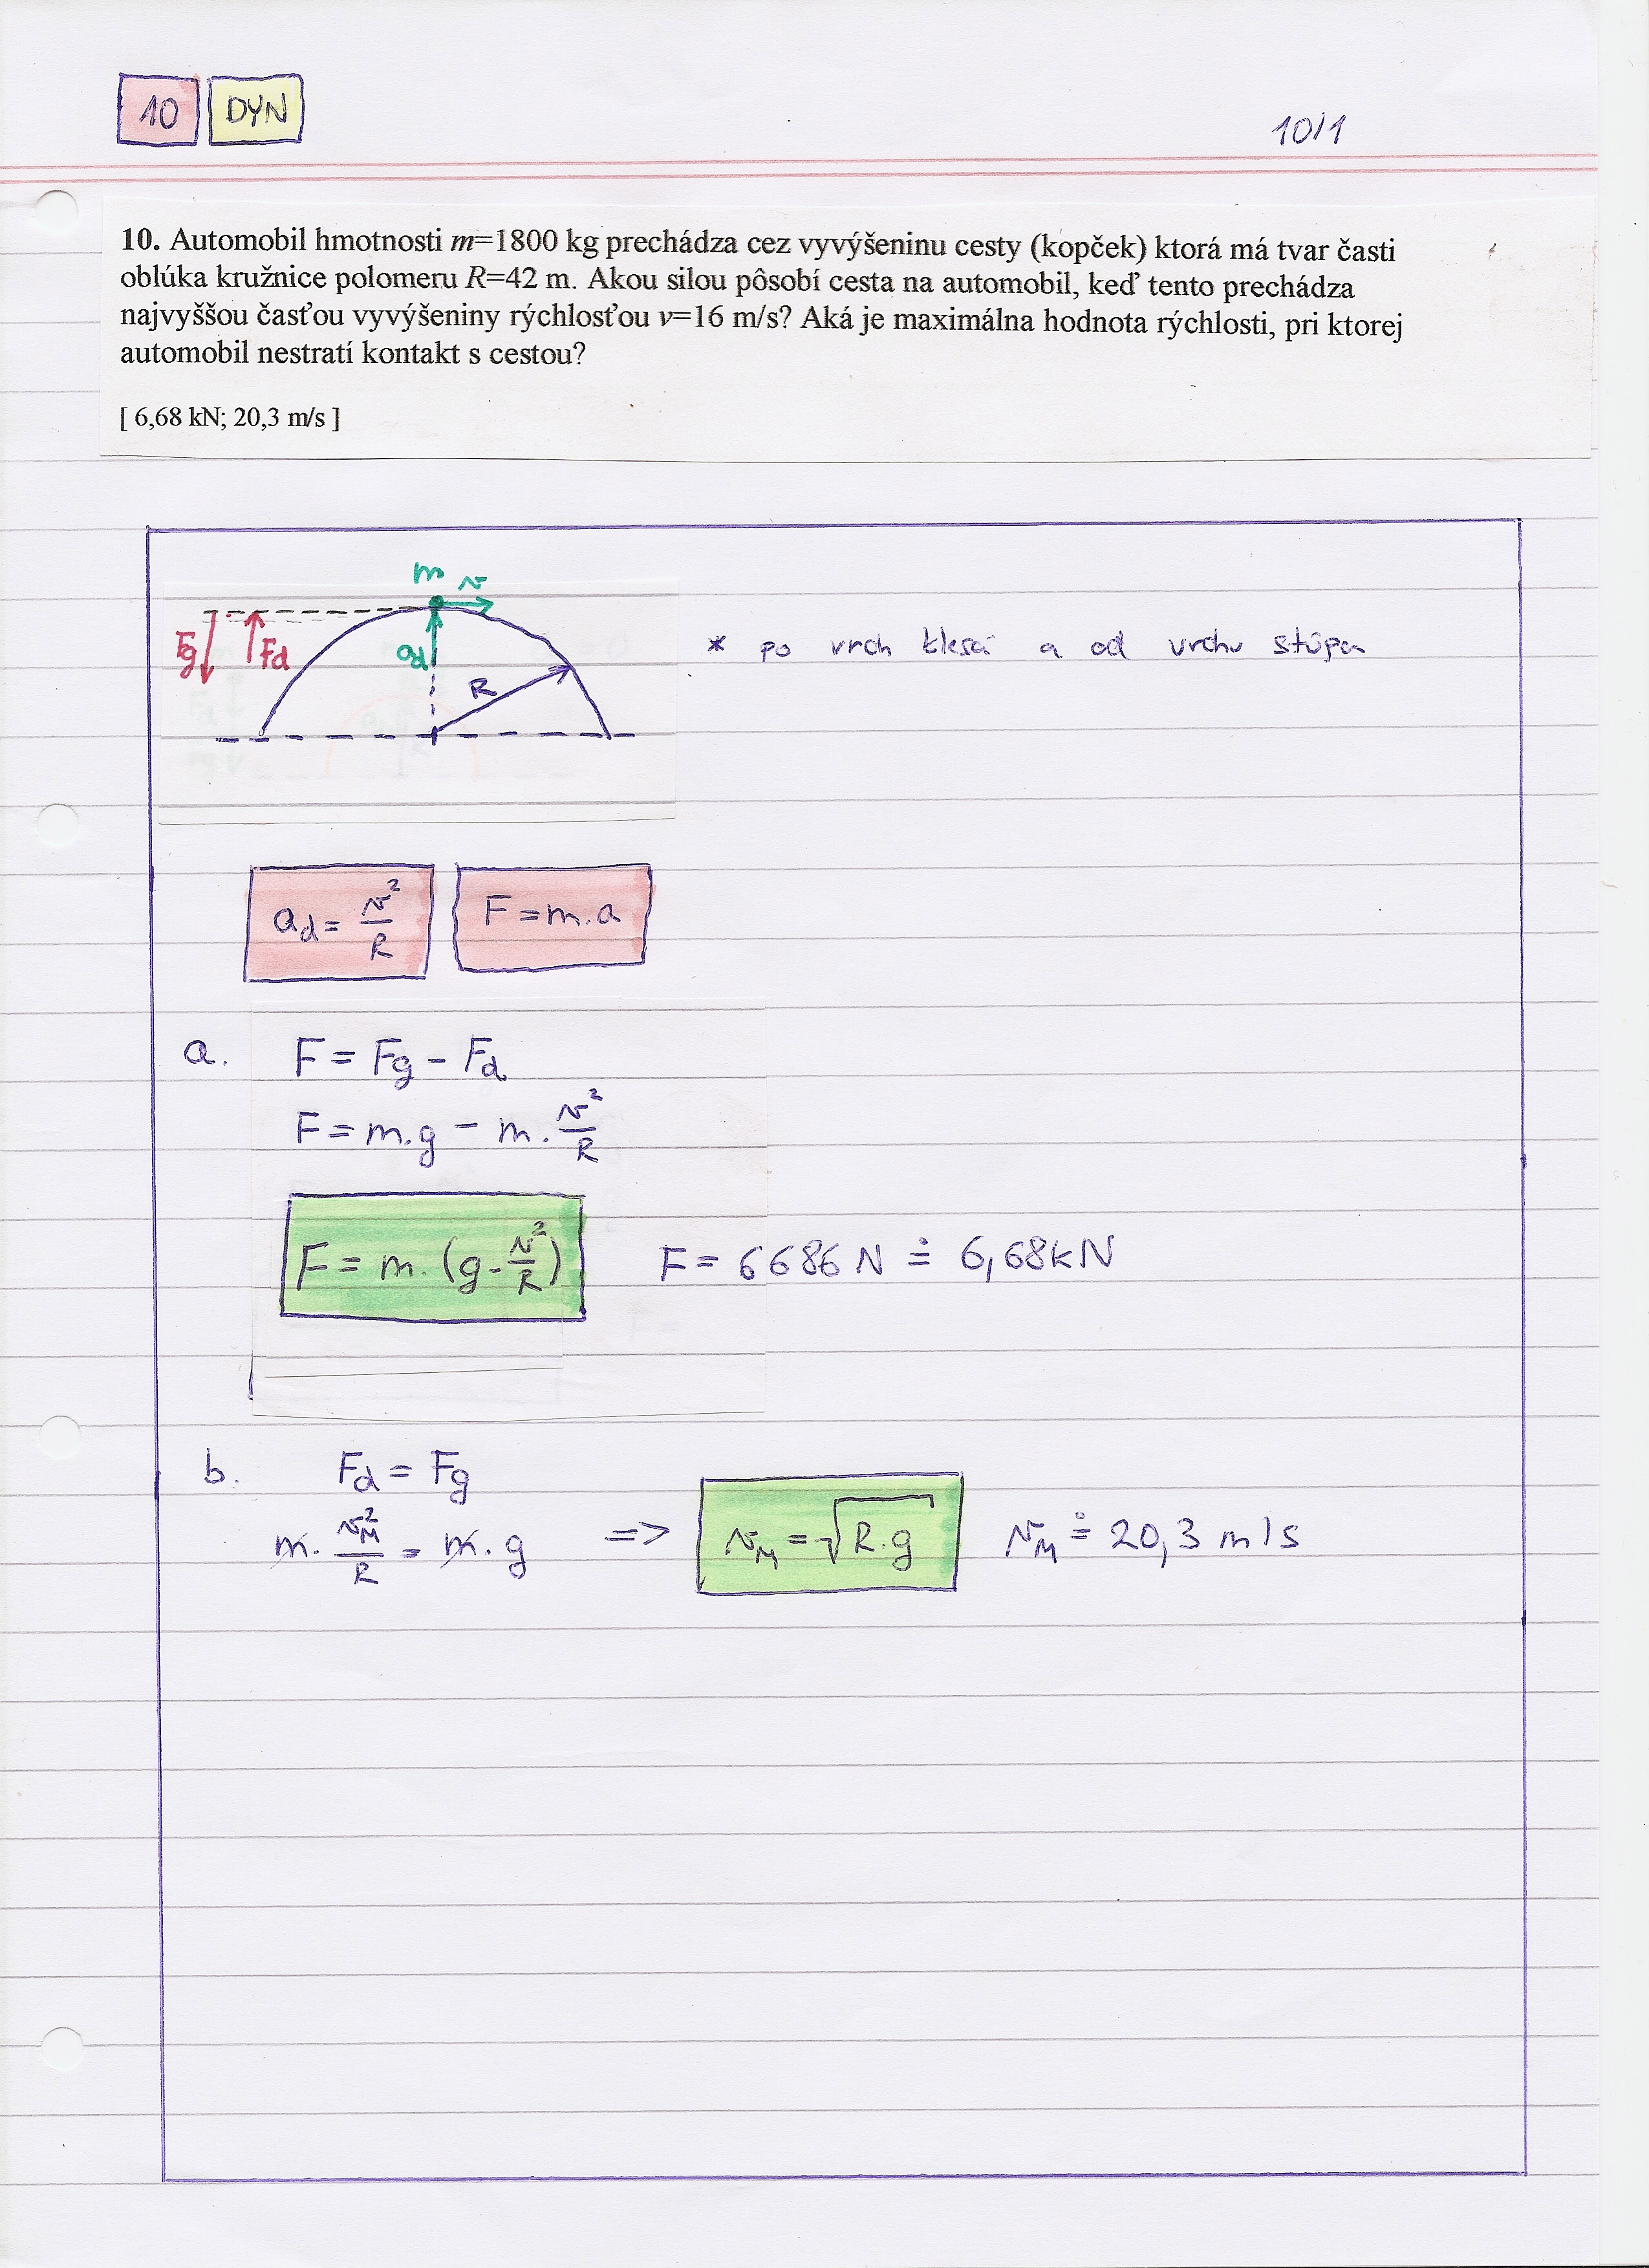 10 DYN
10/1
10. Automobil hmotnosti m=1800 kg prechádza cez vyvýšeninu cesty (kopček) ktorá má tvar časti
oblúka kružnice polomeru R=42 m. Akou silou pôsobí cesta na automobil, keď tento prechádza
najvyššou časťou vyvýšeniny rýchlosťou v=16 m/s? Aká je maximálna hodnota rýchlosti, pri ktorej
automobil nestratí kontakt s cestou?
[ 6,68 kN; 20,3 m/s ]
m v
Fg Fd ad R
* po vrch klesá a od vrchu stúpa
ad = v²/R F = m.a
a. F = Fg - Fd
F = m.g - m. v²/R
F = m. (g - v²/R) F = 6686 N ≐ 6,68kN
b. Fd = Fg
m. vM²/R = m.g => vM = √R.g vM ≐ 20,3 m/s